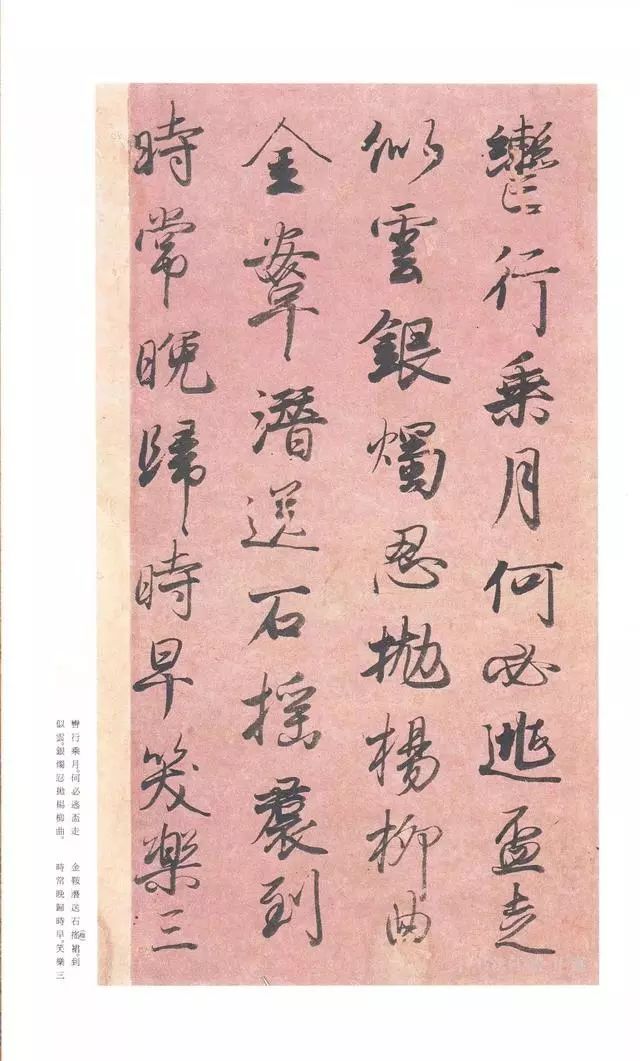 轡行乗月何必逃盃走
似雲銀燭忍拋楊柳曲
金鞌潛送石搖裠到
時常晚歸時早笑樂三
轡行乘月。何必逃盃走
似雲。銀燭忍拋楊柳曲。
金鞍潛送石搖裙。到
時常晚歸時早。笑樂三